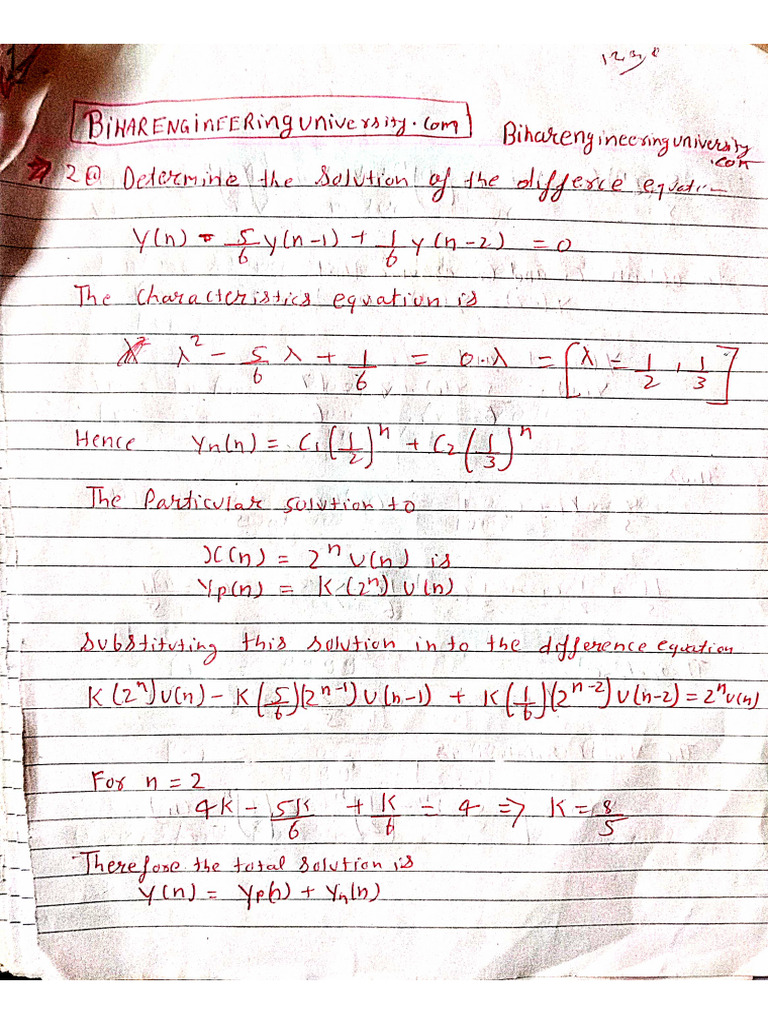 BIHARENGINEERING UNIVERSITY.COM
Biharengineeringuniversity
.com
2 @ Determine the solution of the differce equation
Y(n) - 5/6 y(n-1) + 1/6 y(n-2) = 0
The characteristics equation is
λ² - 5/6 λ + 1/6 = 0 ∴ λ = [λ = 1/2, 1/3]
Hence Yn(n) = C1 (1/2)^n + C2 (1/3)^n
The Particular solution to
X(n) = 2^n U(n) is
Yp(n) = K (2^n) U(n)
Substituting this solution in to the difference equation
K(2^n)U(n) - K(5/6)(2^n-1)U(n-1) + K(1/6)(2^n-2)U(n-2) = 2^n U(n)
For n = 2
4K - 5K/6 + K/6 = 4 => K = 8/5
Therefore the total solution is
Y(n) = Yp(n) + Yn(n)